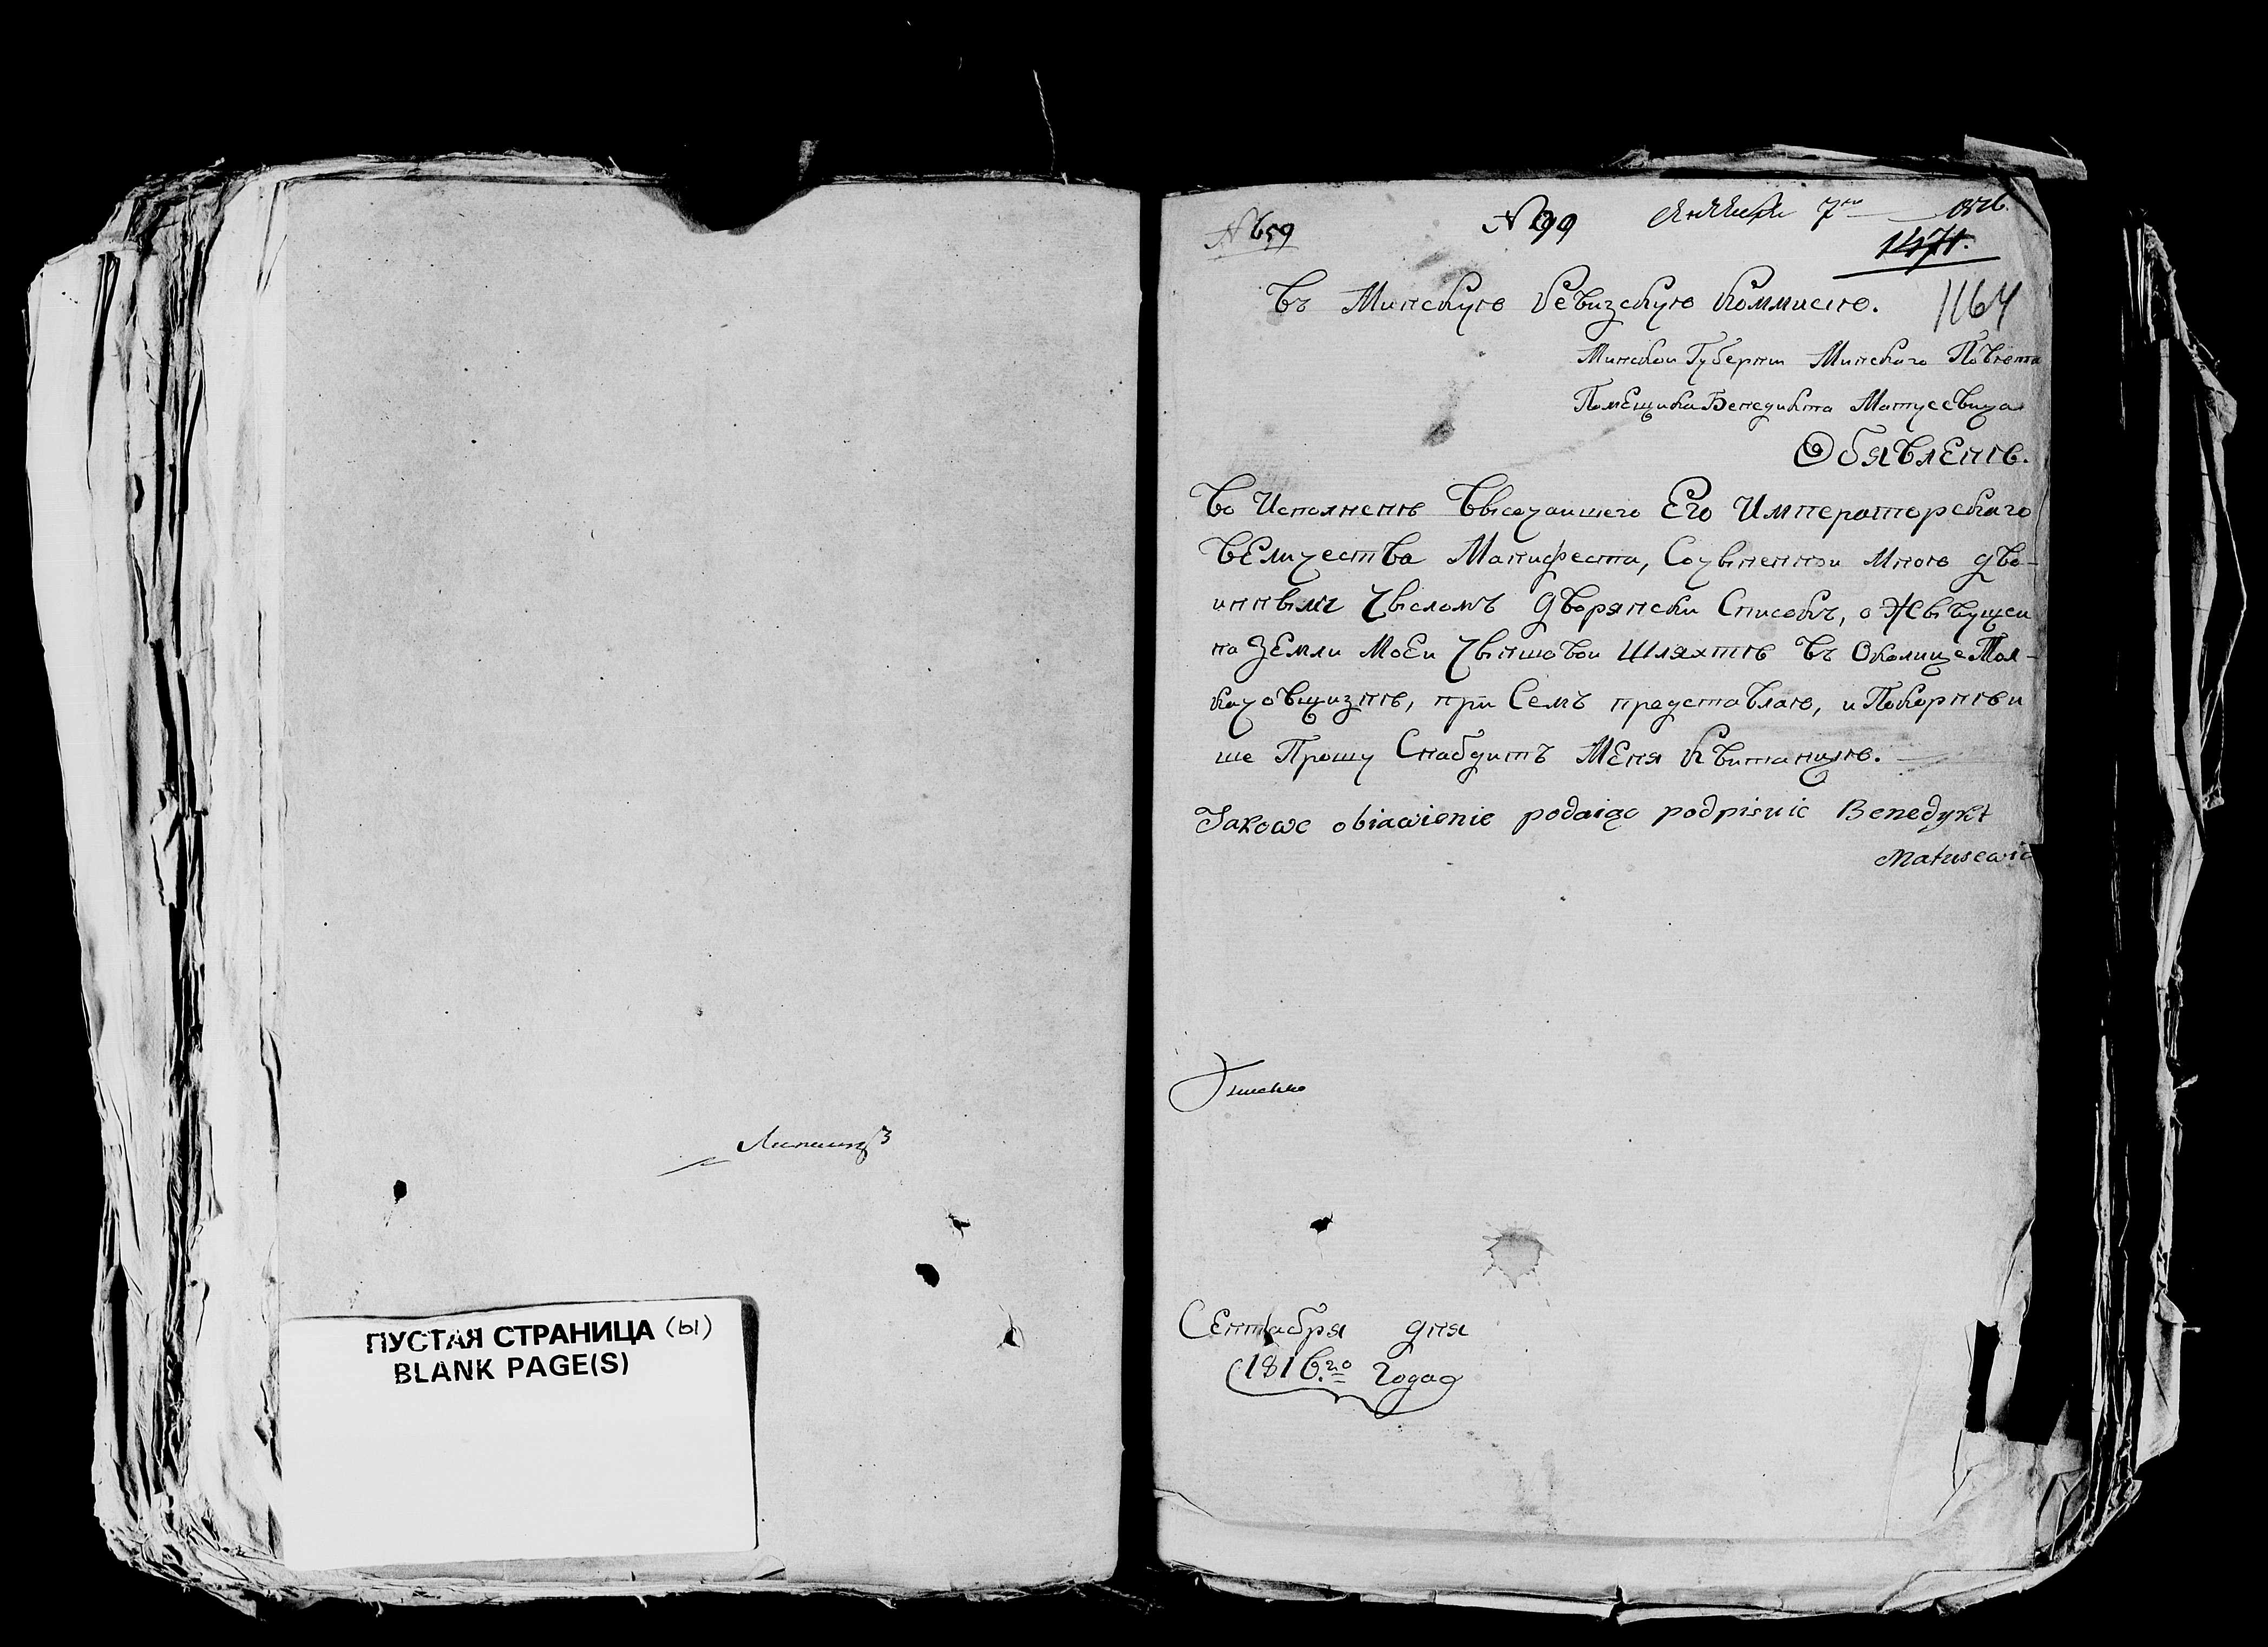 ПУСТАЯ СТРАНИЦА (ы)
BLANK PAGE(S)
№ 659
№ 99
7го
1471.
1164
Въ Минскую Ревизскую Коммисию.
Минской Губернии Минскаго Повѣта
Помещика Бенедикта Матусевича
Обявленіе.
Во Исполненіе Высочаишего Его Императорскаго
Величества Манифеста, Сочыненнои Мною дво-
инымъ Чысломъ Дворянски Списокъ, о Жывущеи
на Земли Моеи Чыншовои Шляхтѣ Въ Околице Тол-
качовщизнѣ, при Семъ представлаю, и Покорнѣи
ше Прошу Снабдитъ Меня Квитанцию.
Jakowe obiawienie podaiąc podpisuic Benedykt
Matusewic
Сентабря дня
1816.го Года